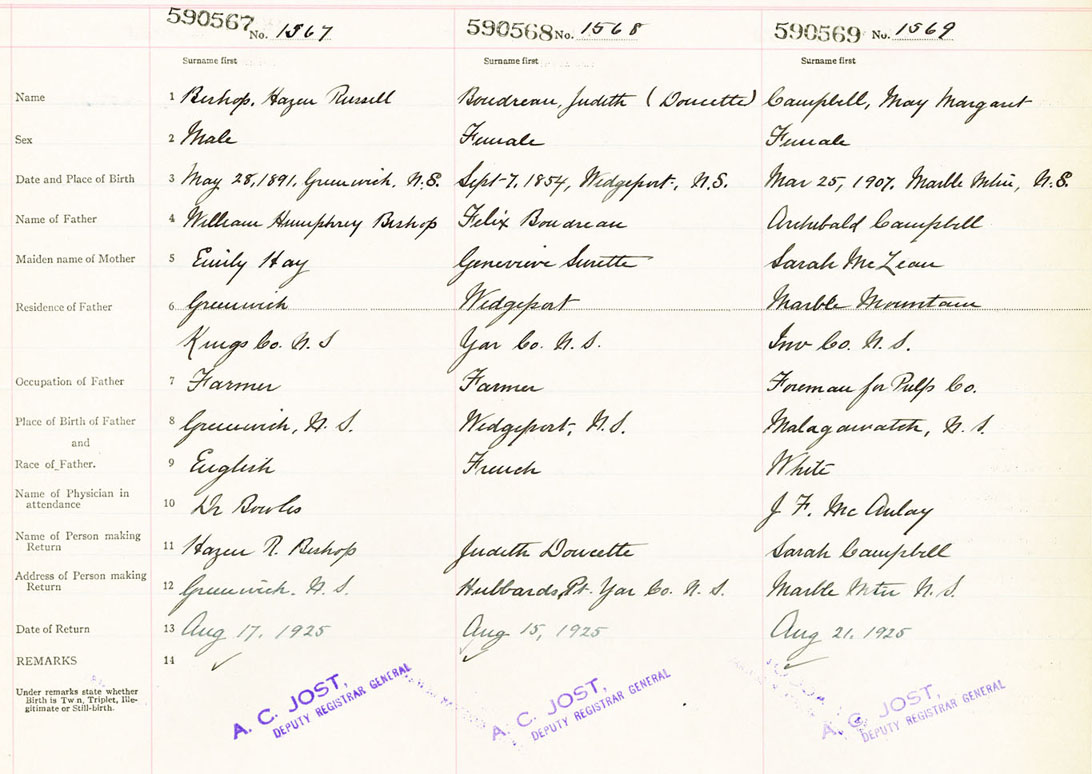 590567 No. 1567 590568 No. 1568 590569 No. 1569
Surname first Surname first Surname first
Name 1 Bishop, Hazen Russell Boudreau, Judith (Doucette) Campbell, May Margaret
Sex 2 Male Female Female
Date and Place of Birth 3 May 28, 1891, Greenwich, N.S. Sept 7, 1854, Wedgeport, N.S. Mar 25, 1907. Marble Mtn, N.S.
Name of Father 4 William Humphrey Bishop Felix Boudreau Archibald Campbell
Maiden name of Mother 5 Emily Hay Genevieve Surette Sarah McLean
Residence of Father 6 Greenwich Wedgeport Marble Mountain
Kings Co. N.S Yar Co. N.S. Inv Co. N.S.
Occupation of Father 7 Farmer Farmer Foreman for Pulp Co.
Place of Birth of Father 8 Greenwich, N.S. Wedgeport, N.S. Malagawatch, N.S.
and
Race of Father. 9 English French White
Name of Physician in
attendance 10 Dr Bowles J. F. McAulay
Name of Person making
Return 11 Hazen R. Bishop Judith Doucette Sarah Campbell
Address of Person making
Return 12 Greenwich. N.S. Hubbards Pt. Yar Co. N.S. Marble Mtn N.S.
Date of Return 13 Aug 17, 1925 Aug 15, 1925 Aug 21, 1925
REMARKS 14
Under remarks state whether
Birth is Twin, Triplet, Ille-
gitimate or Still-birth.
A. C. JOST, A. C. JOST, A. C. JOST,
DEPUTY REGISTRAR GENERAL DEPUTY REGISTRAR GENERAL DEPUTY REGISTRAR GENERAL